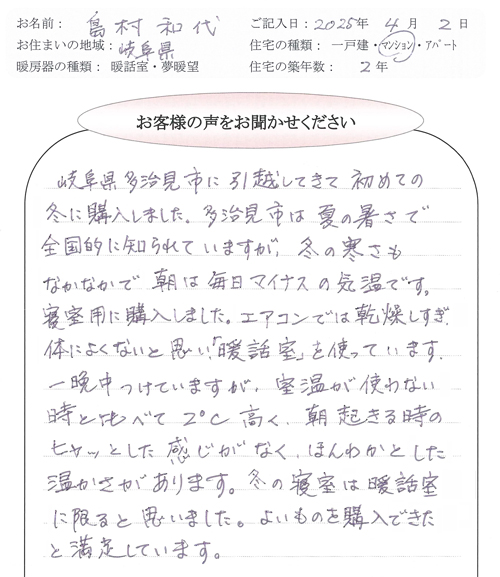 お名前： 島村和代
ご記入日：2025年 4月 2日
お住まいの地域：岐阜県
住宅の種類： 一戸建・マンション・アパート
暖房器の種類： 暖話室・夢暖望
住宅の築年数： 2年
お客様の声をお聞かせください
岐阜県多治見市に引越してきて初めての
冬に購入しました。多治見市は夏の暑さで
全国的に知られていますが、冬の寒さも
なかなかで朝は毎日マイナスの気温です。
寝室用に購入しました。エアコンでは乾燥しすぎ、
体によくないと思い「暖話室」を使っています。
一晩中つけていますが、室温が使わない
時と比べて2℃高く、朝起きる時の
ヒヤッとした感じがなく、ほんわかとした
温かさがあります。冬の寝室は暖話室
に限ると思いました。よいものを購入できた
と満足しています。